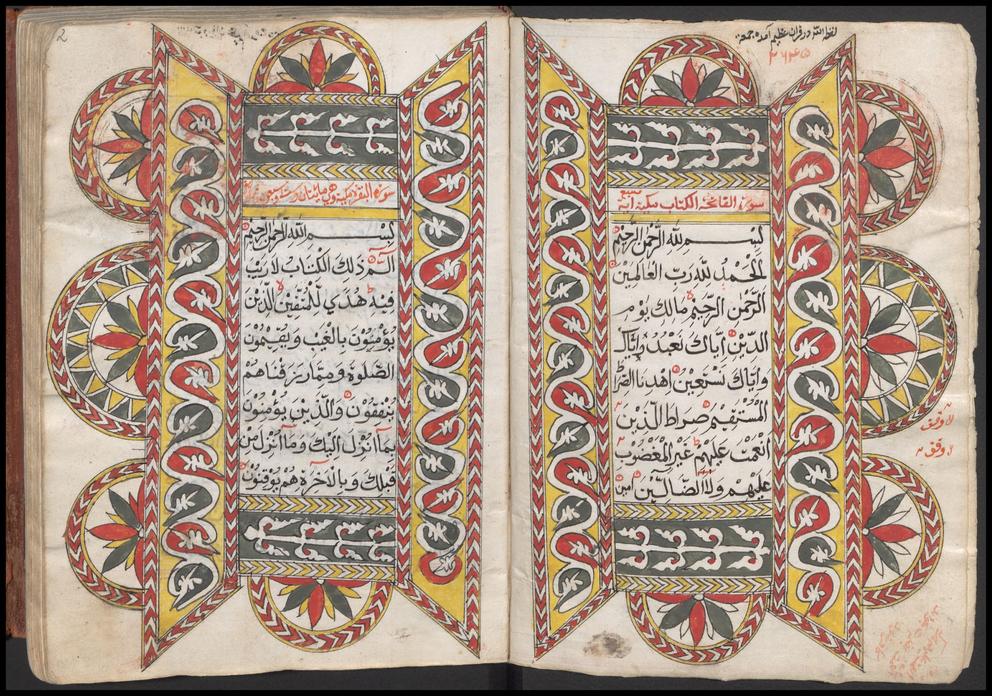 لفظ الله در قران عظیم آمده جمع
۲۶۴۵
سورة الفاتحة الكتاب مكية سبع آية
بسم لله الرحمن الرحيم
الحمد لله رب العالمين
الرحمن الرحيم مالك يوم
الدين اياك نعبد واياك
واياك نستعين اهدنا الصرا
المستقيم صراط الذين
انعمت عليهم غير المغضوب
عليهم ولا الضالين امين
وقف
وقف
2
سورة البقرة
بسم الله الرحمن الرحيم
الم ذلك الكتاب لا ريب
فيه هدي للمتقين الذين
يؤمنون بالغيب ويقيمون
الصلوة ومما رزقناهم
ينفقون والذين يؤمنون
بما انزل اليك وما انزل من
قبلك وبالاخرة هم يوقنون